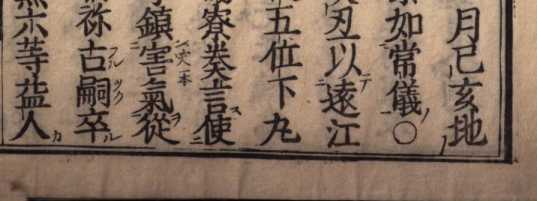 月己亥地
如常儀○
丑以遠江
五位下丸
寮奏言使
鎮害氣從
祢古嗣卒
亦等益人